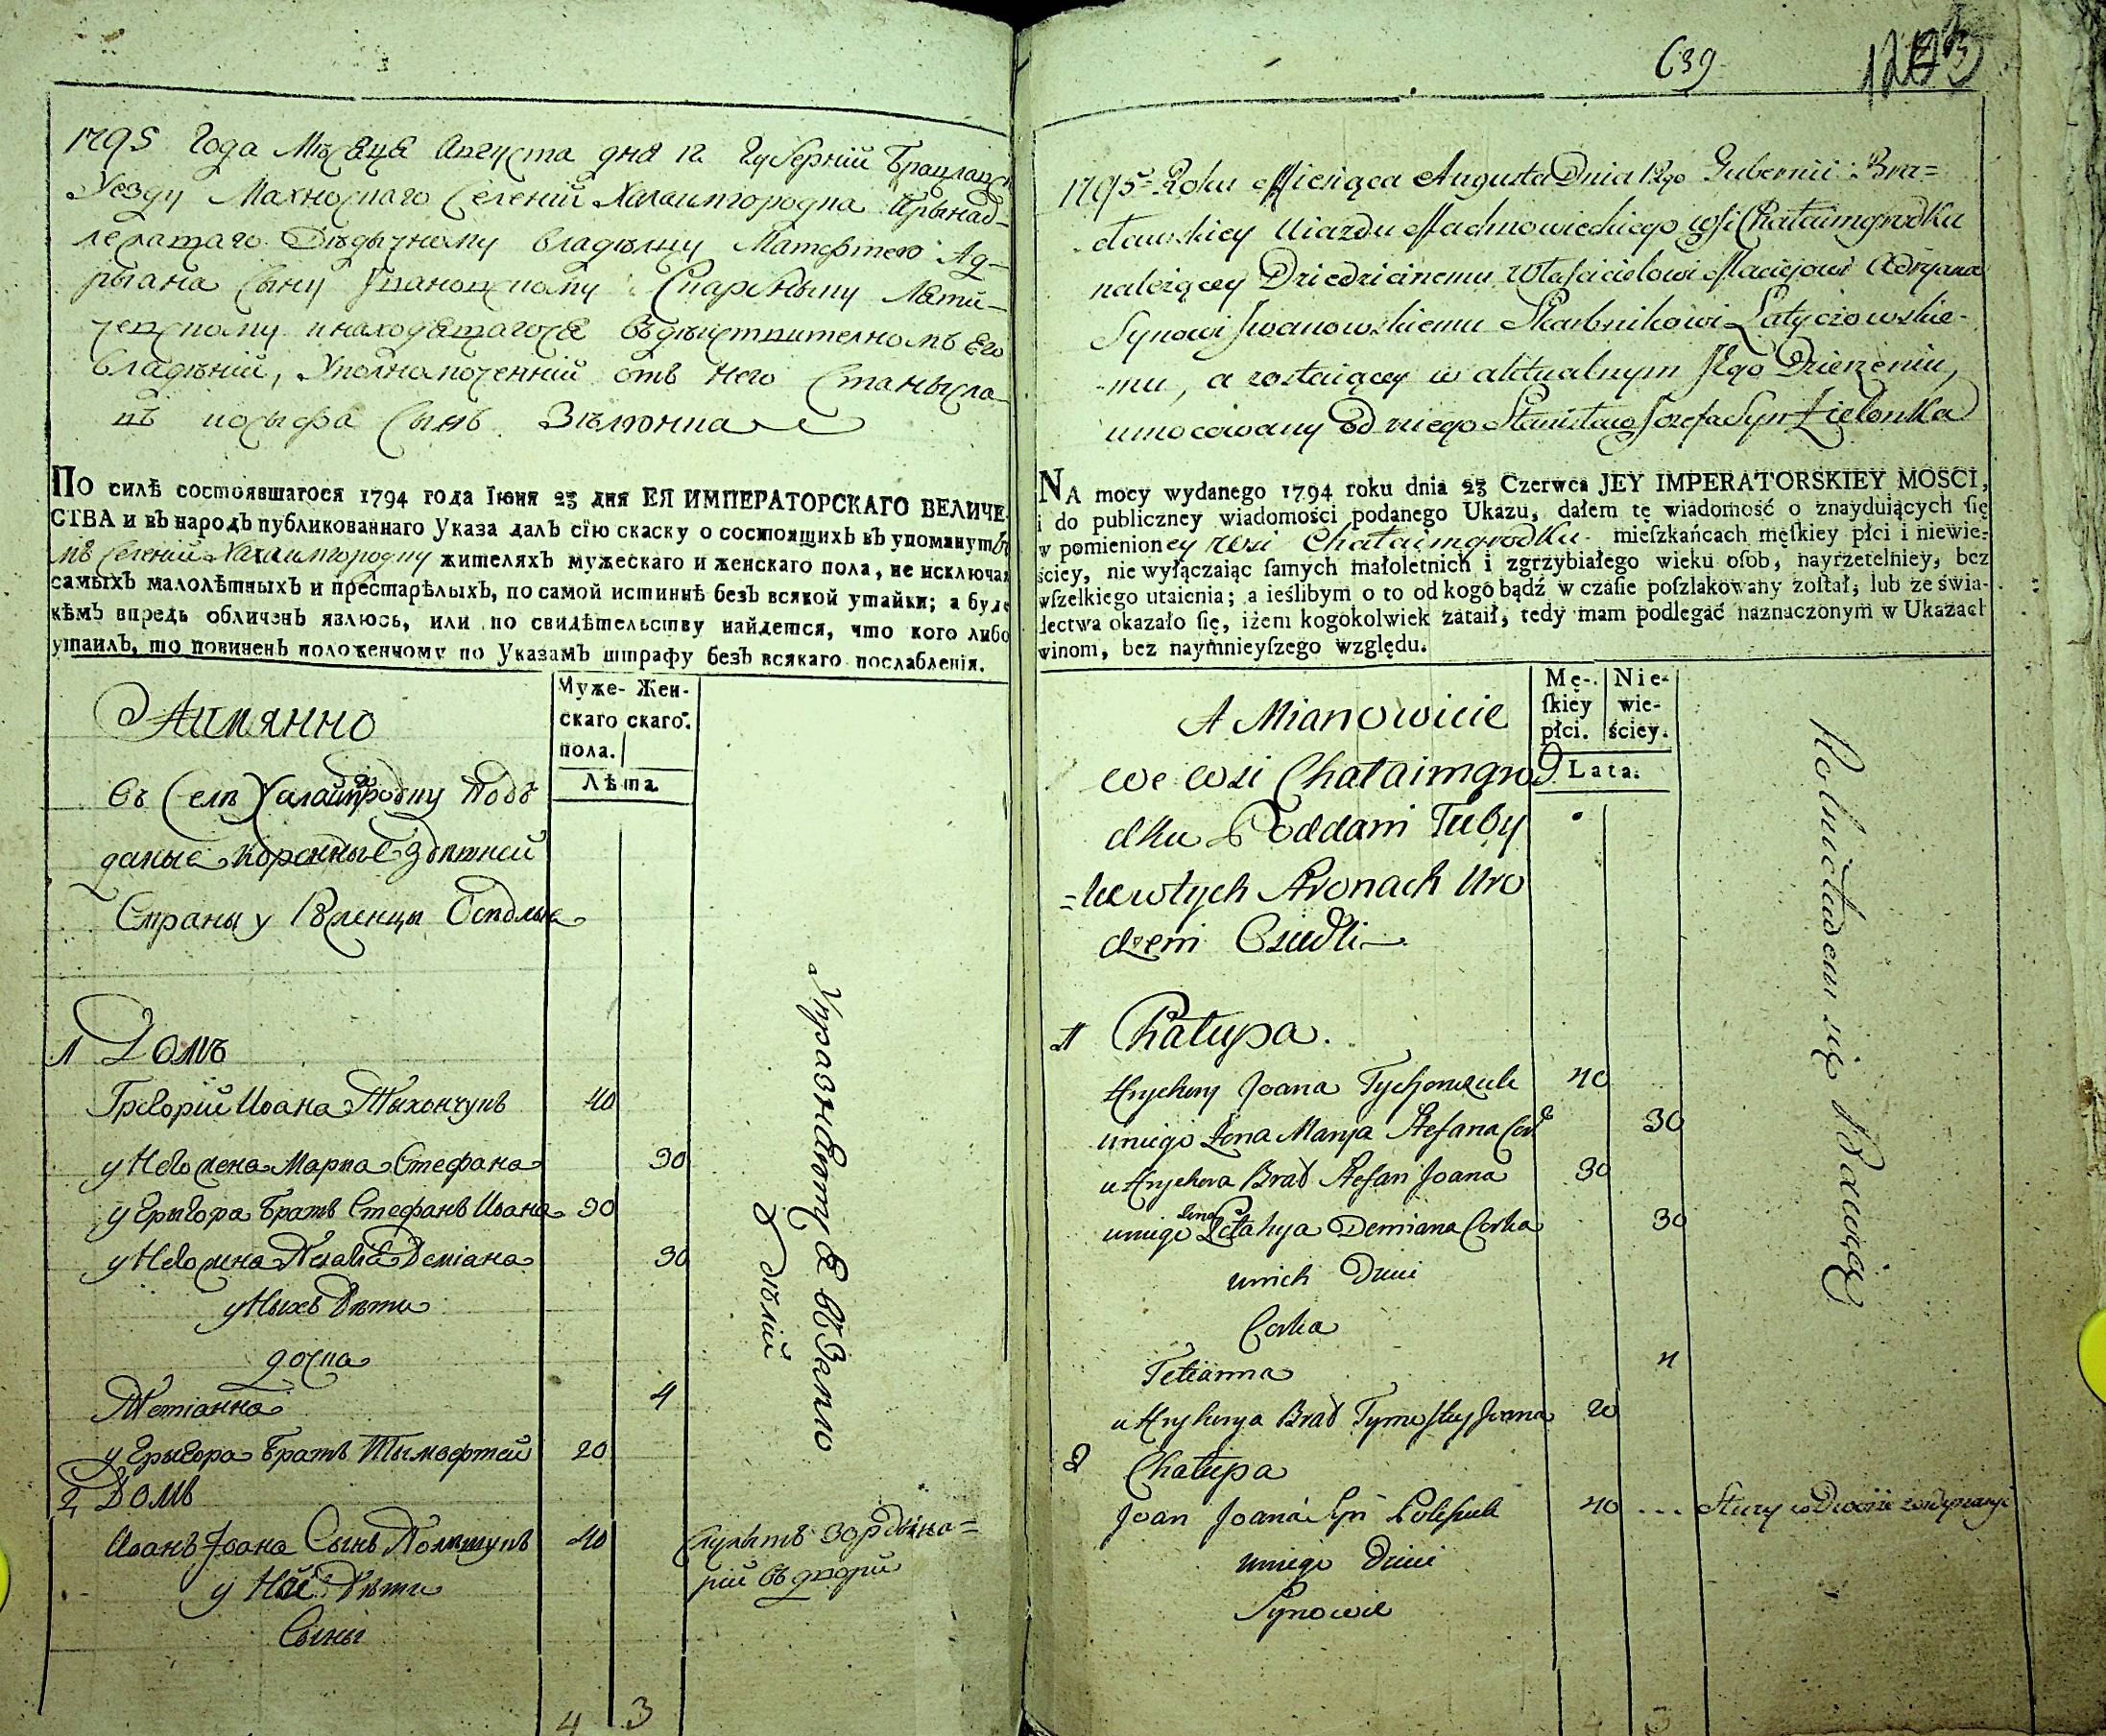 1795 Года Мѣсяця Августа дня 12 Губерніи Брацлавск
Уезду Махновскаго Селенїи Халаимгородка Прынад-
лежащаго Дѣдычному владѣлцу Матефтею Ад-
рыана Сыну Ивановскому Скарбныку Лати-
чевскому и находящагося въ дѣйствителномъ Его
владѣнїй, Уполномоченнїй отъ Него Станысла
въ иосыфа Сынъ Зѣлюнка
ПО силѣ состоявшагося 1794 года Іюня 23 дня ЕЯ ИМПЕРАТОРСКАГО ВЕЛИЧЕ-
СТВА и въ народъ публикованнаго Указа далъ сїю скаску о состоящихъ въ упомянутѣ
мъ Селенїй Халаимгородку жителяхъ мужескаго и женскаго пола, не исключая
самыхъ малолѣтныхъ и престарѣлыхъ, по самой истиннѣ безъ всякой утайки; а буде
кѣмъ впредь обличенъ явлюсь, или по свидѣтельству найдется, что кого либо
утаилъ, то повиненъ положенному по Указамъ штрафу безъ всякаго послабленїя.
Муже- Жен-
скаго скаго.
пола.
Лѣта
Аимянно
въ Селѣ Халаимгродку Подъ
даные Коренные здѣшней
Страны уроженцы Осѣдлые
1 Домъ
Грегорїй Иоана Тыхончукъ 40
у Него жена Марія Стефана 30
у Грыгора братъ Стефанъ Иоана 30
у Него жена Пелагія Демїана 30
у Ныхъ дѣти
дочка
Тетіанна 4
у Грыгора братъ Тымофтей 20
2 Домъ
Иоанъ Іоана Сынъ Полѣщукъ 40 Служытъ Зордына=
рїи въ дворѣ
у Него Дѣти
Сыны
Упражняютця въ Земле
дѣлїи
4 3
639
1795 Roku Miesiąca Augusta Dnia 12go Gubernii Bra=
cławskiey Uiazdu Machnowieckiego wsi Chałaimgrodku
należącey Dziedzicznemu Właścicielowi Maciejowi Adryana
Synowi Iwanowskiemu Skarbnikowi Latyczowskie-
-mu, a zostaiącey w aktualnym Jego Dzierzeniu,
umocowany od niego Stanisław Jozefa Syn Zielonka
NA mocy wydanego 1794 roku dnia 23 Czerwca JEY IMPERATORSKIEY MOSCI,
i do publiczney wiadomości podanego Ukazu, dałem tę wiadomość o znayduiących się
w pomienioney wsi Chałaimgrodku mieſzkańcach męſkiey płci i niewie-
ściey, nie wyłączaiąc ſamych małoletnich i zgrzybiałego wieku oſob, nayrzetelniey, bez
wſzelkiego utaienia; a ieślibym o to od kogo bądź w czaſie poſzlakowany zoſtał, lub ze świa-
dectwa okazało ſię, iżem kogokolwiek zataił, tedy mam podlegać naznaczonym w Ukazach
winom, bez naymnieyſzego względu.
Mę-
ſkiey
płci.
Nie-
wie-
ściey.
Lata.
A Mianowicie
we wsi Chałaimgro
dku Poddani Tuby
=lce w tych Stronach Uro
dzeni Osiedli
1 Chałupa.
Hryhory Joana Tychonczuk 40
u niego Żona Marya Stefana Cor 30
u Hryhora Brat Stefan Joana 30
u niego żona Pelahya Demiana Corka 30
u nich Dzieci
Corka
Tetianna 4
u Hryhorya Brat Tymoftey Joana 20
2 Chałupa
Joan Joana Syn Polischuk 40 ... Służy w Dworze zordynaryi
u niego Dzieci
Synowie
Rolnictwem się bawią